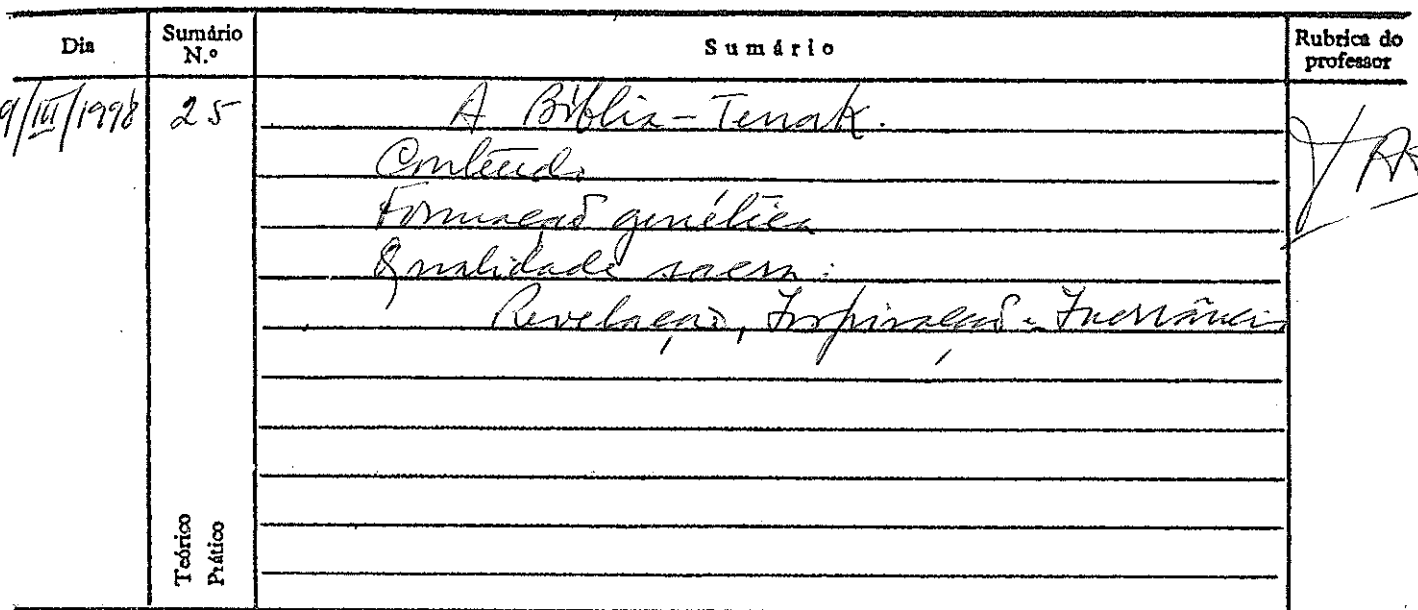 Dia
Sumário N.º
Sumário
Rubrica do professor
9/III/1998
25
A Bíblia - Tenak.
Conteúdo
Formação genética
Qualidade sacra:
Revelação, Inspiração - Inerrância
Teórico
Prático